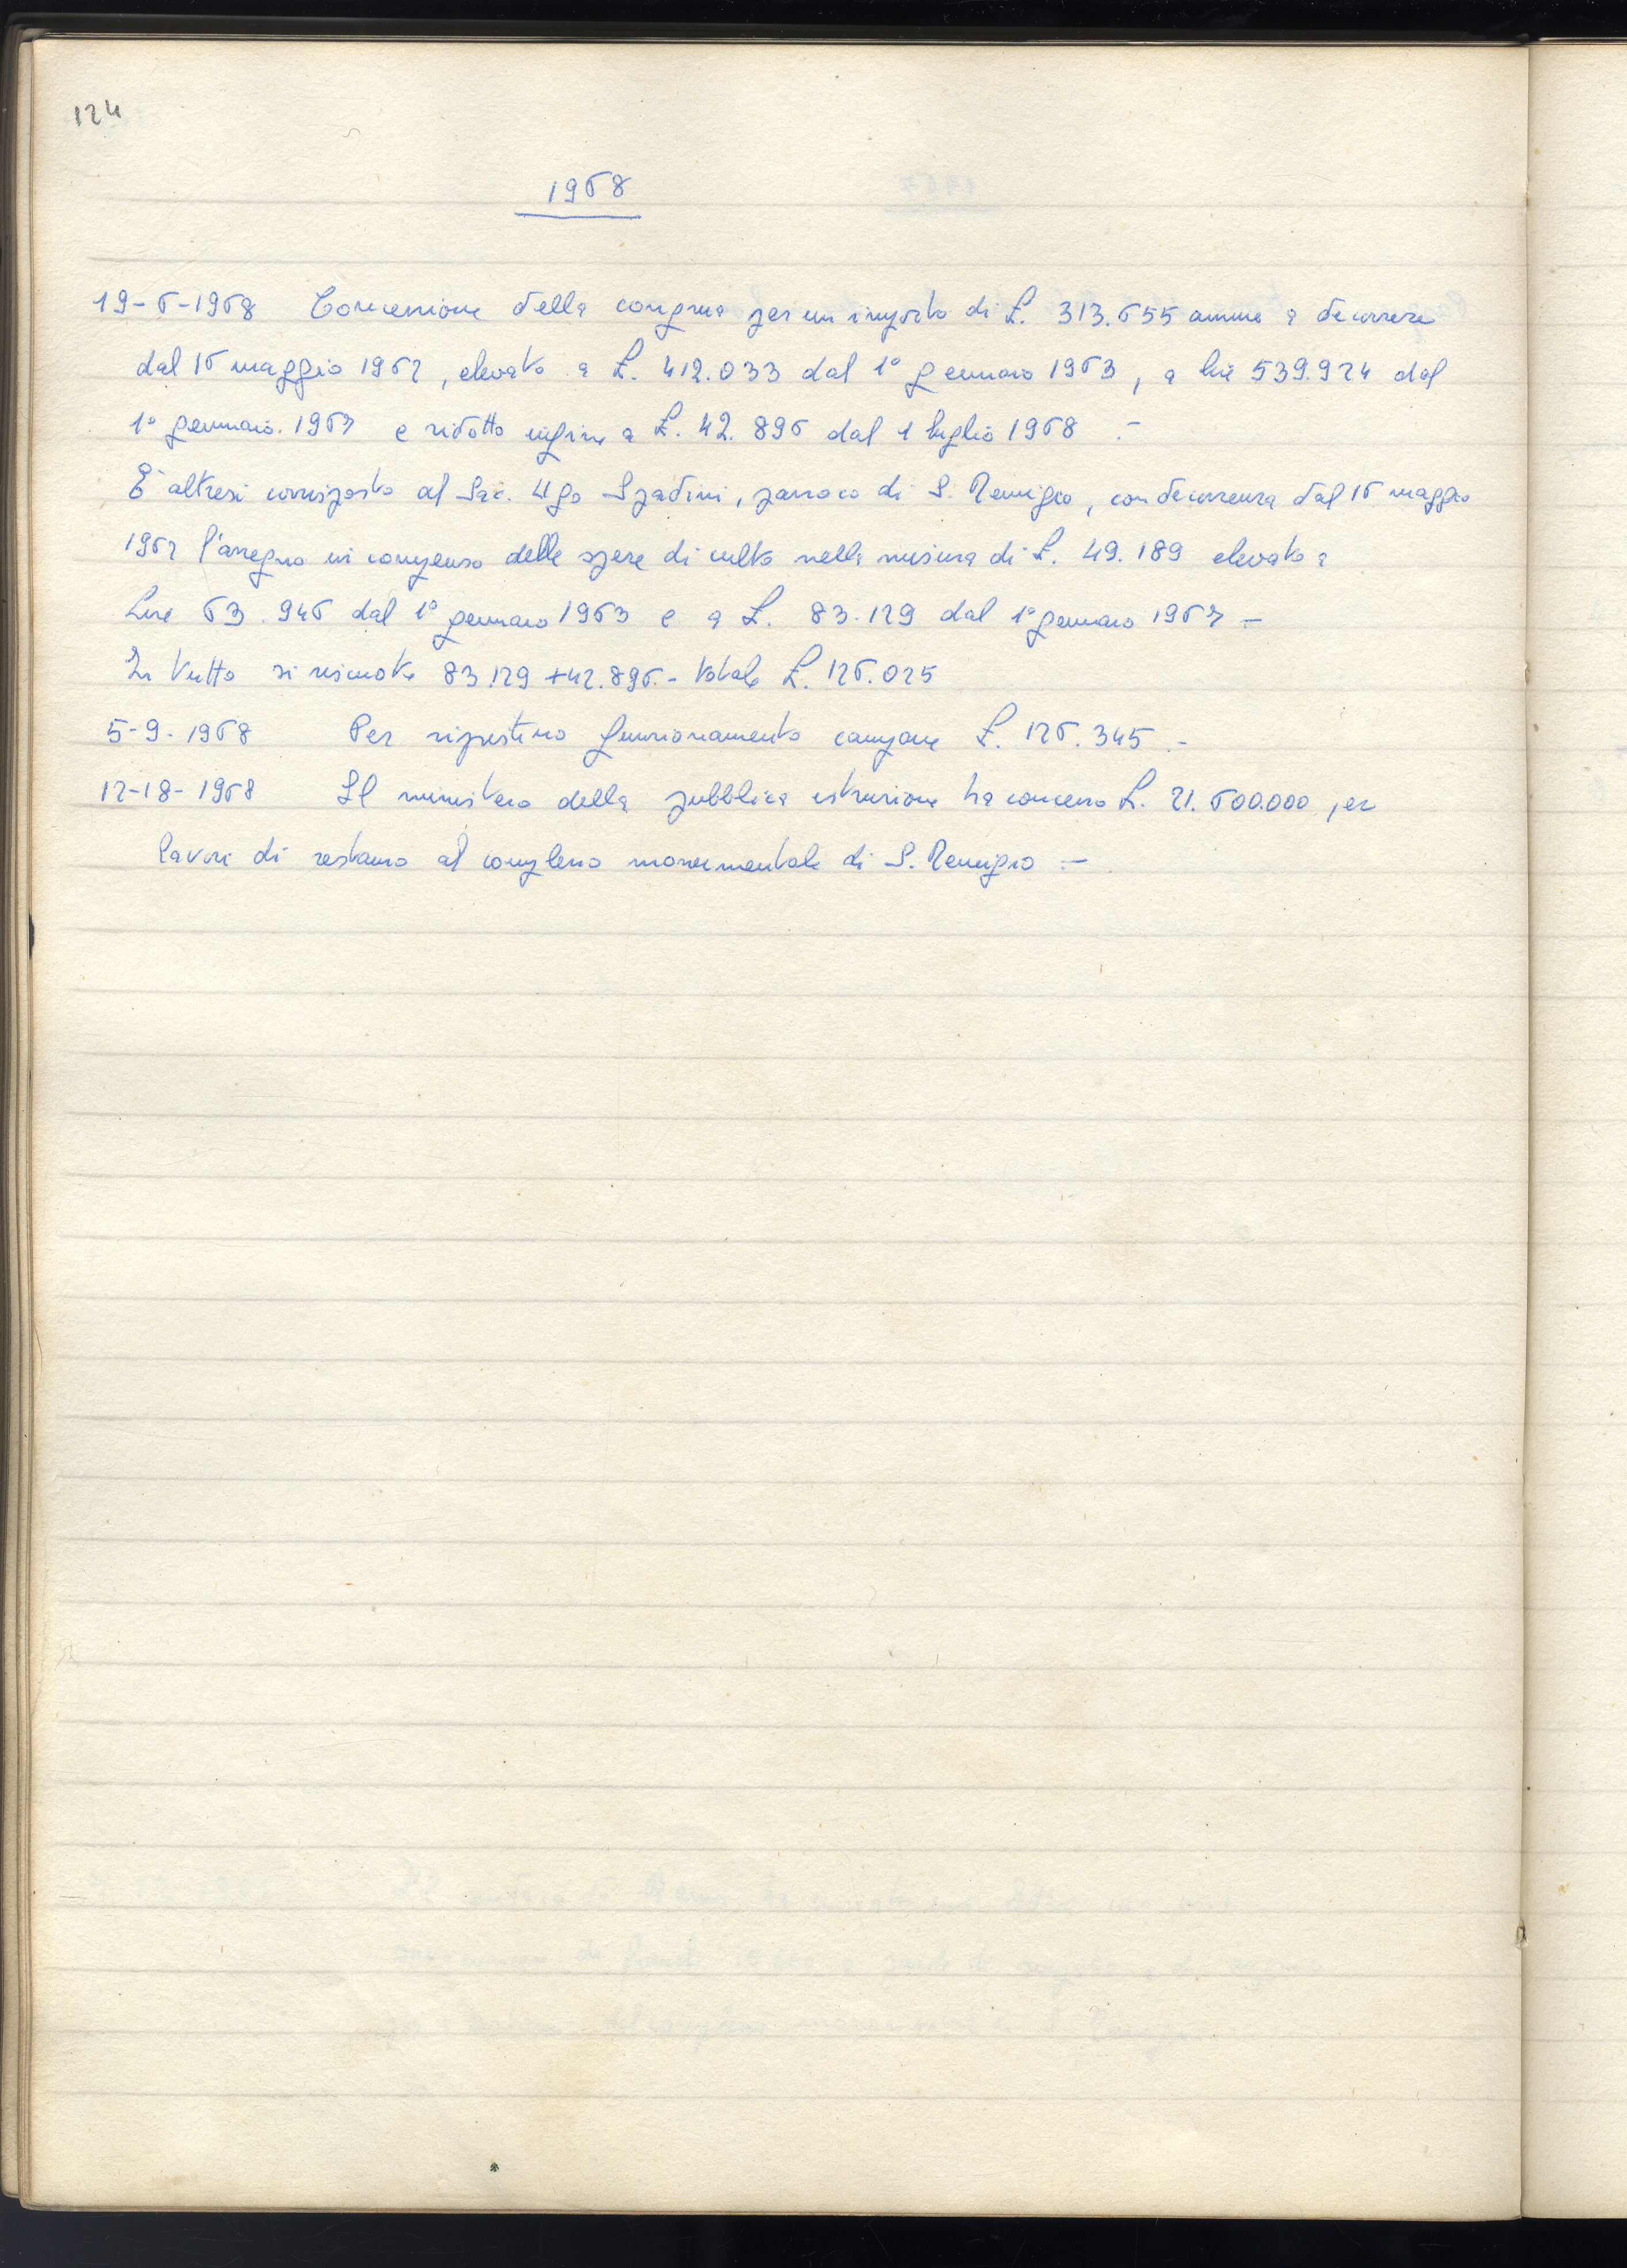 124
1968
19-6-1968 Concessione della congrua per un importo di £. 313.655 annue a decorrere
dal 16 maggio 1962, elevato a £. 412.033 dal 1° gennaio 1963, a lire 539.924 dal
1° gennaio 1967 e ridotto infine a £. 42.896 dal 1 luglio 1968 .-
È altresì corrisposto al Sac. Ugo Spadini, parroco di S. Remigio, con decorrenza dal 16 maggio
1962 l'assegno in compenso delle spese di culto nella misura di £. 49.189 elevato a
Lire 63.946 dal 1° gennaio 1963 e a £. 83.129 dal 1° gennaio 1967 -
In tutto si riscuote 83.129 + 42.896.- totale £. 126.025
5-9-1968 Per ripristino funzionamento campane £. 126.345 .-
12-18-1968 Il ministero della pubblica istruzione ha concesso £. 21.600.000 per
lavori di restauro al complesso monumentale di S. Remigio .-